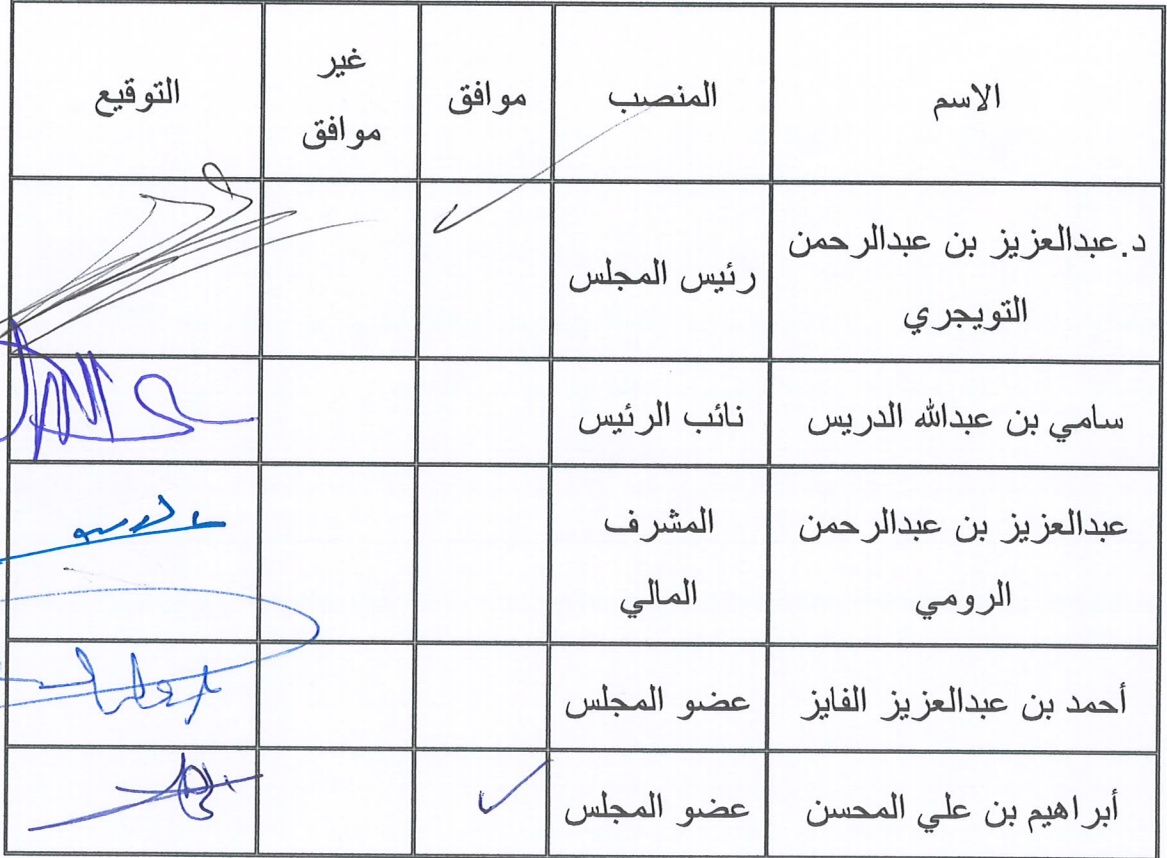 الاسم المنصب موافق غير موافق التوقيع
د.عبدالعزيز بن عبدالرحمن التويجري رئيس المجلس
سامي بن عبدالله الدريس نائب الرئيس
عبدالعزيز بن عبدالرحمن الرومي المشرف المالي
أحمد بن عبدالعزيز الفايز عضو المجلس
أبراهيم بن علي المحسن عضو المجلس